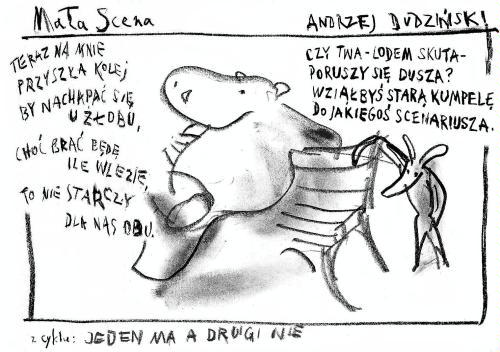 Mała Scena
ANDRZEJ DUDZIŃSKI
TERAZ NA MNIE
PRZYSZŁA KOLEJ
BY NACHAPAĆ SIĘ
U ŻŁOBU,
CHOĆ BRAĆ BĘDĘ
ILE WLEZIE,
TO NIE STARCZY
DLA NAS OBU.
CZY TWA-LODEM SKUTA-
PORUSZY SIĘ DUSZA?
WZIĄŁBYŚ STARĄ KUMPELĘ
DO JAKIEGOŚ SCENARIUSZA.
z cyklu: JEDEN MA A DRUGI NIE